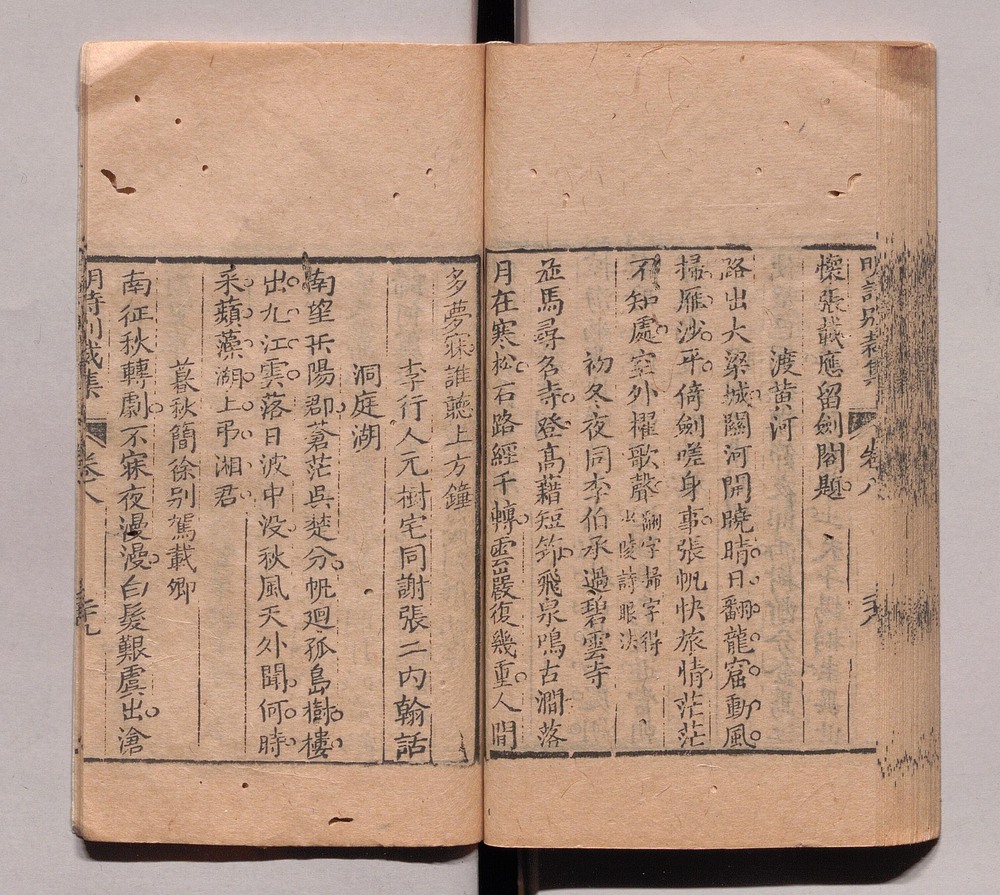 明詩別裁集 卷八
懷張載應留劍閣題
渡黃河
路出大梁城關河開曉晴日翻龍窟動風
掃雁沙平倚劍嗟身事張帆快旅情茫茫
不知處空外櫂歌聲翻字掃字得
少陵詩眼法
初冬夜同李伯承過碧雲寺
並馬尋名寺登高藉短筇飛泉鳴古澗落
月在寒松石路經千轉雲巖復幾重人間
多夢寐誰聽上方鐘
李行人元樹宅同謝張二內翰話
洞庭湖
南望岳陽郡蒼茫吳楚分帆迴孤島樹樓
出九江雲落日波中沒秋風天外聞何時
采蘋藻湖上弔湘君
暮秋簡徐別駕載卿
南征秋轉劇不寐夜漫漫白髮艱虞出滄
明詩別裁集 卷八